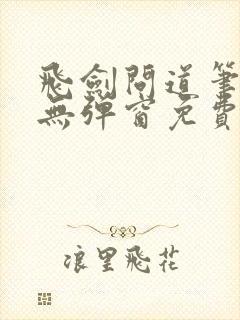 飛劍問道筆
無彈窗免費
浪里飛花